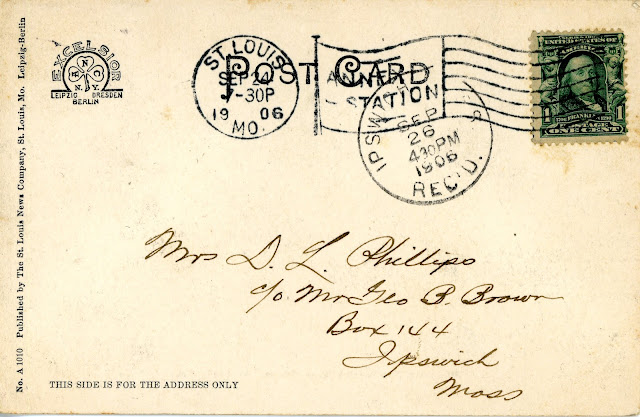 EXCELSIOR
N N.Y.
LEIPZIG DRESDEN
BERLIN
POST CARD
ST. LOUIS
SEP 24
7-30P
19 06
MO.
ANNEX
STATION
IPSWICH
SEP
26
430PM
1906
REC'D.
UNITED STATES OF
AMERICA
FRANKLIN
1 1
POSTAGE
ONE CENT
Mrs D. L. Phillips
c/o Mr Geo B. Brown
Box 144
Ipswich
Mass
THIS SIDE IS FOR THE ADDRESS ONLY
No. A 1010 Published by The St. Louis News Company, St. Louis, Mo. Leipzig-Berlin